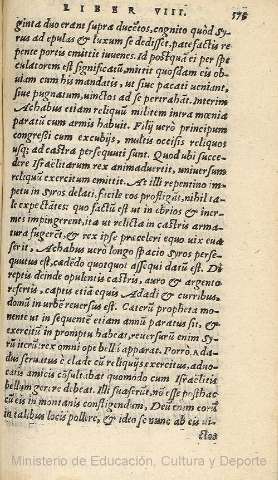 LIBER VIII. 575
ginta duo erant supra ducētos, cognito quòd Sy-
rus ad epulas & luxum se dedisset, patefactis re
pente portis emittit iuuenes. Ad postquā ei per spe
culatorem est significatū, mittit quosdam eis ob-
uiam cum his mandatis, ut siue pacati ueniant,
siue pugnatum, uinctos ad se pertrahāt. Interim
Achabus etiam reliquū militem intra mœnia
paratū cum armis habuit. Filij uerò principum
congressi cum excubijs, multos occisis reliquos
usq; ad castra persequuti sunt. Quod ubi succe-
dere Israëlitarum rex animaduertit, uniuersum
reliquū exercitum emittit. At illi repentino im-
petu in Syros delati, facile eos profligāt, nihil ta-
le expectātes: quo factū est ut in ebrios & iner-
mes impingerent, ita ut relicta in castris arma-
tura fugerēt, & rex ipse præceleri equo uix eua
serit. Achabus uerò longo spacio Syros perse-
quutus est, cædēdo quotquot assequi datū est. Di
reptis deinde opulentis castris, auro & argento
refertis, captis etiā equis Adadi & curribus,
domū in urbē reuersus est. Caterū propheta mo-
nente ut in sequentē etiam annū paratus sit, &
exercitū in promptu habeat, reuersurū enim Sy-
rū iterū: rex omni ope belli apparat. Porrò Adadus
seruatus è clade cū reliquijs exercitus, aduo-
catis amicis cōsultabat quomodo cum Israëlitis
bellum gerere debeat. Illi suaserūt, nō esse posthac
cū eis in montanis confligendum, Deū enim eorū
in talibus locis pollere, & ideo se nunc ab eis ui-
ctos
Ministerio de Educación, Cultura y Deporte